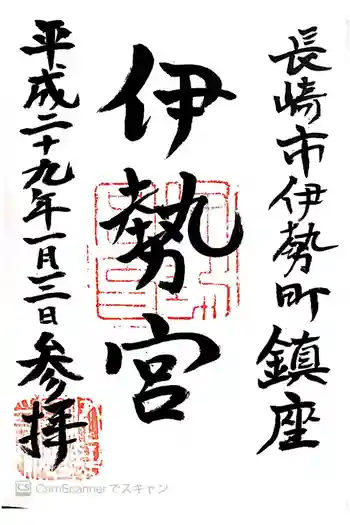 長崎市伊勢町鎮座
伊勢宮
平成二十九年一月三日参拝
CamScanner でスキャン